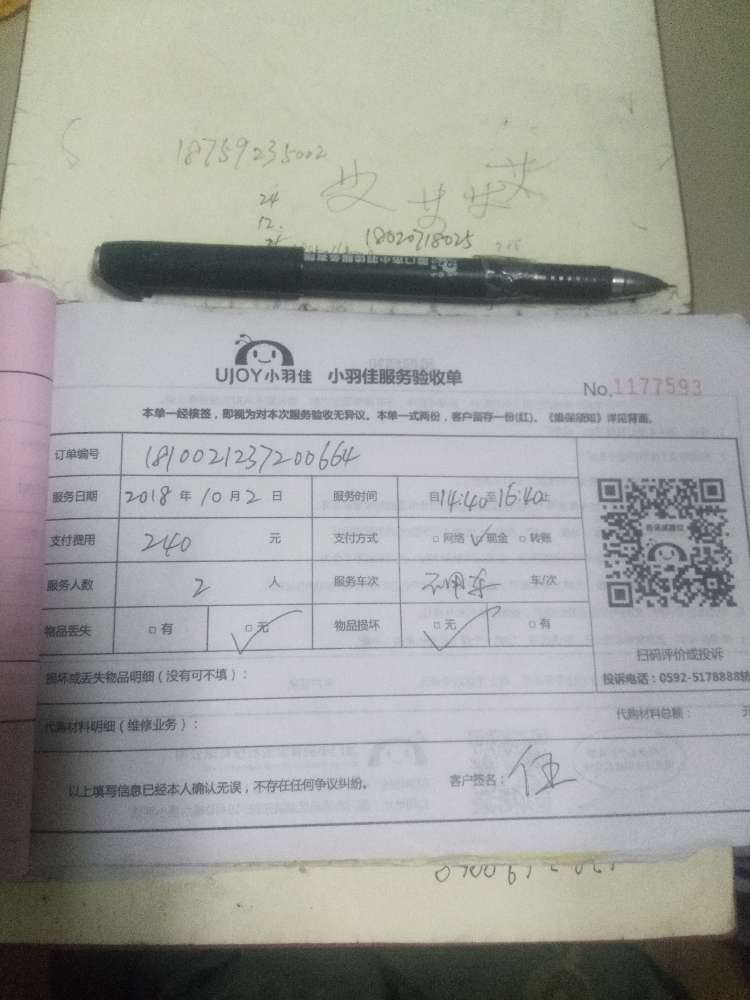 18759235002
艾艾艾艾
24
12.
18020718025
UJOY小羽佳 小羽佳服务验收单
No.1177593
本单一经核签，即视为对本次服务验收无异议。本单一式两份，客户留存一份(红)。《维保须知》详见背面。
订单编号 1810021237200664
服务日期 2018 年 10 月 2 日 服务时间 自14:40至16:40止
支付费用 240 元 支付方式 □网络 ✓现金 □转账
服务人数 2 人 服务车次 不用车 车/次
物品丢失 □有 □无 ✓ 物品损坏 □无 ✓ □有
扫码评价或投诉
损坏或丢失物品明细（没有可不填）：
投诉电话：0592-5178888转
代购材料明细（维修业务）： 代购材料总额： 元
以上填写信息已经本人确认无误，不存在任何争议纠纷。 客户签名：伍